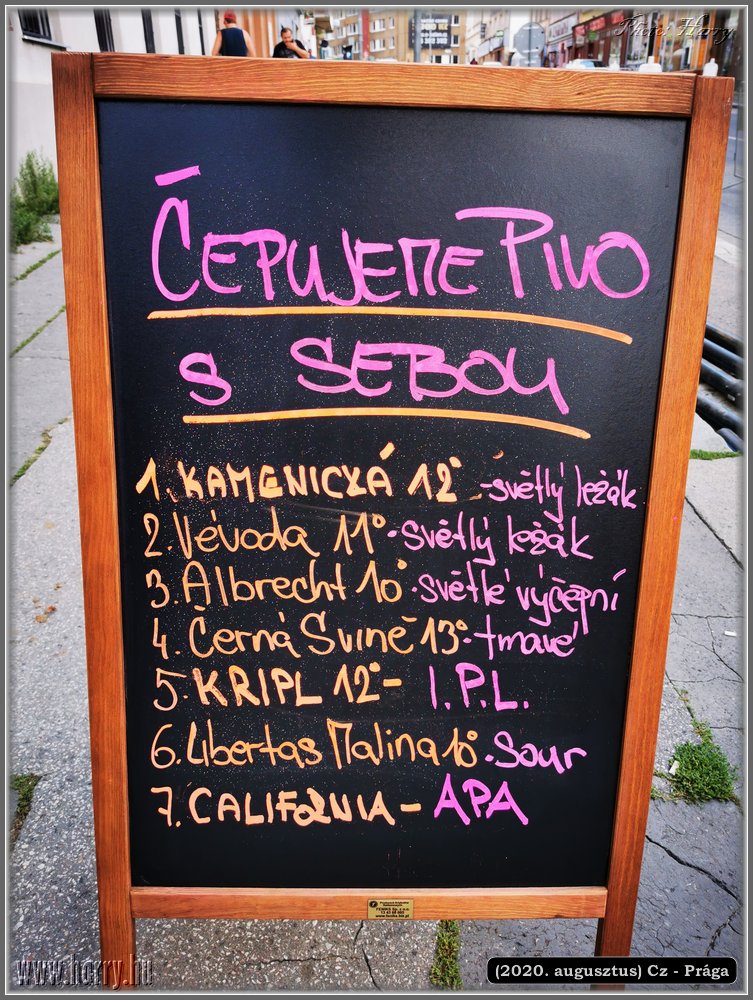 Photo: Harry
ČEPUJEME PIVO
S SEBOU
1. KAMENICKÁ 12° - světlý ležák
2. Vévoda 11° - světlý ležák
3. Albrecht 10° - světlé výčepní
4. Černá Svině 13° - tmavé
5. KRIPL 12° - I.P.L.
6. Libertas Malina 10° - Sour
7. CALIFORNIA - APA
www.horry.hu
(2020. augusztus) Cz - Prága